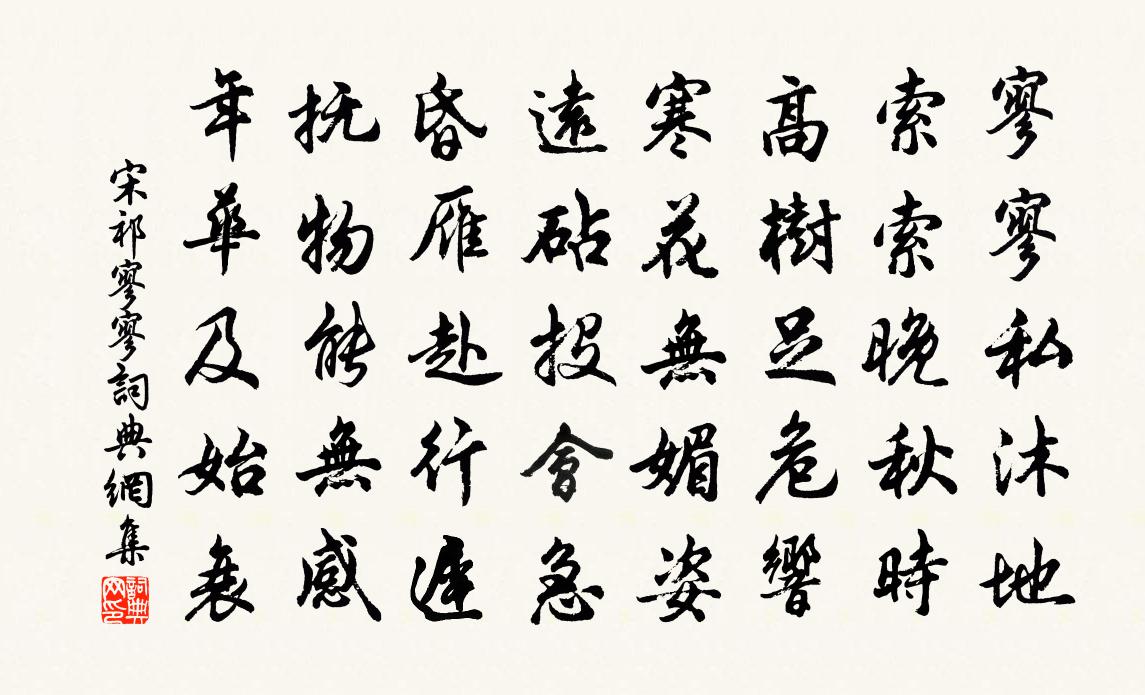 寥寥私沐地
索索晚秋時
高樹足危響
寒花無媚姿
遠砧投會急
昏雁赴行遲
抚物能無感
年華及始衰
宋祁寥寥詞典網集
詞典网印